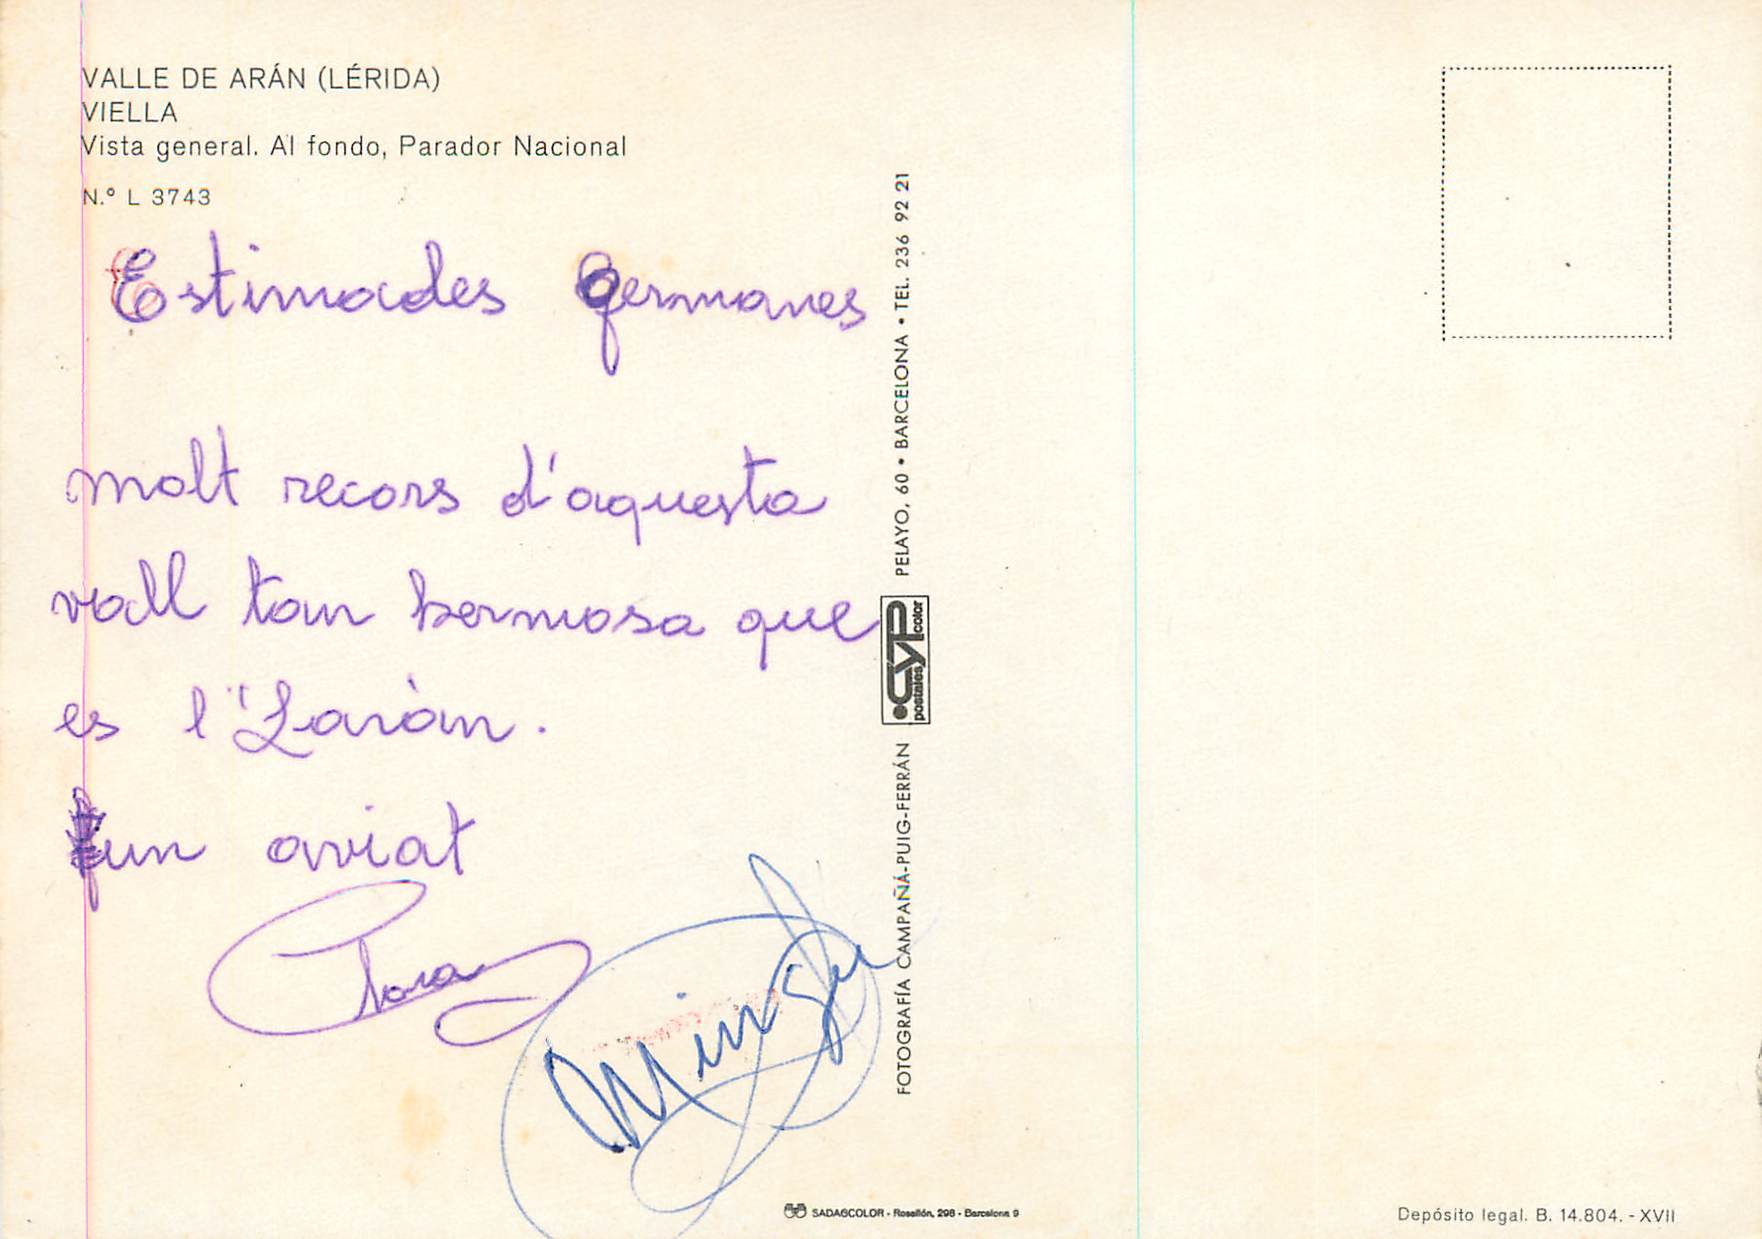 VALLE DE ARÁN (LÉRIDA)
VIELLA
Vista general. Al fondo, Parador Nacional
N.º L 3743
Estimades germanes
molt recors d'aquesta
vall tan hermosa que
es l'Laràn.
fun aviat
FOTOGRAFÍA CAMPAÑÁ-PUIG-FERRÁN
postales CYP color
PELAYO, 60 • BARCELONA • TEL. 236 92 21
SADAGCOLOR - Rosellón, 298 - Barcelona 9
Depósito legal. B. 14.804. - XVII